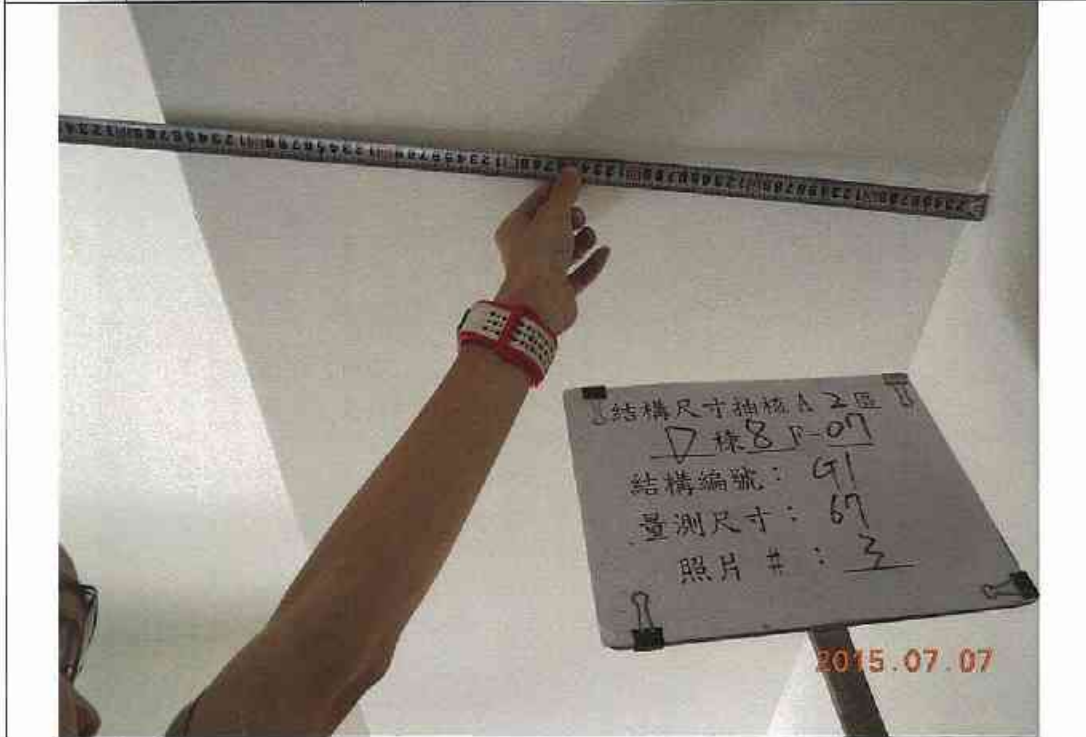 結構尺寸抽核 A 2區
D 棟 8 F-07
結構編號： G1
量測尺寸： 67
照片 #： 3
2015.07.07